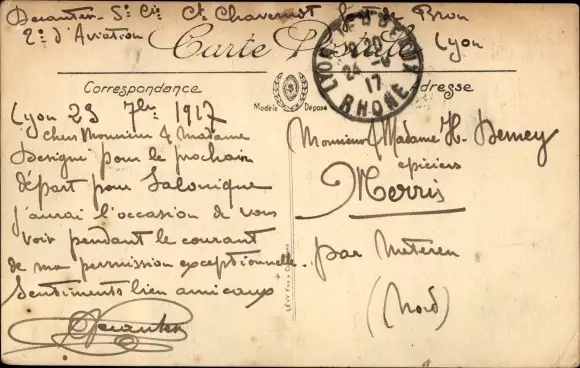 Decanter - 5e Cie Ct Chavernot fort de Bron
2e d'Aviation Lyon
Carte Postale
LYON
24 - 9
17
RHONE
Correspondance
Modèle Déposé
Adresse
Lyon 23 7bre 1917
Chers Monsieur & Madame
Designé pour le prochain
départ pour Salonique
j'aurai l'occasion de vous
voir pendant le courant
de ma permission exceptionnelle.
Sentiments bien amicaux
Decanter
Monsieur & Madame H. Demey
epiciers
Merris
par Meteren
(Nord)